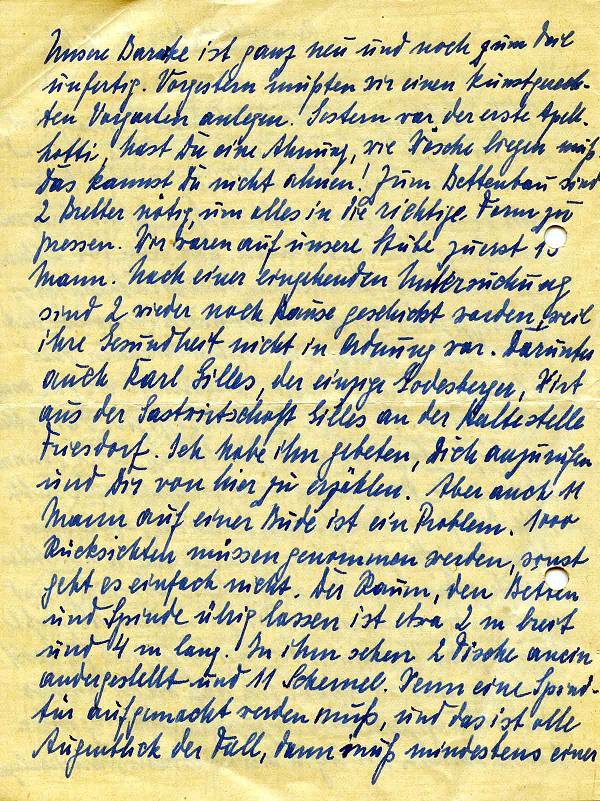 Unsere Baracke ist ganz neu und noch zum Teil
unfertig. Vorgestern mußten wir einen kunstgerech-
ten Vorgarten anlegen. Gestern war der erste Apell.
hast Du eine Ahnung, wie Wäsche liegen muß.
Das kannst Du nicht ahnen! Zum Bettenbau sind
2 Bretter nötig, um alles in die richtige Form zu
pressen. Wir waren auf unsere Stube zuerst 13
Mann. Nach einer eingehenden Untersuchung
sind 2 wieder nach Hause geschickt worden, weil
ihre Gesundheit nicht in Ordnung war. Darunter
auch Karl Gilles, der einzige Godesberger, Wirt
aus der Gastwirtschaft Gilles an der Haltestelle
Friesdorf. Ich habe ihn gebeten, Dich anzurufen
und Dir von hier zu erzählen. Aber auch 11
Mann auf einer Bude ist ein Problem. 1000
Rücksichten müssen genommen werden, sonst
geht es einfach nicht. Der Raum, den Betten
und Spinde übrig lassen ist etwa 2 m breit
und 4 m lang. In ihm sehen 2 Tische anein
andergestellt und 11 Schemel. Wenn eine Spind-
tür aufgemacht werden muß, und das ist alle
Augenblick der Fall, dann muß mindestens einer